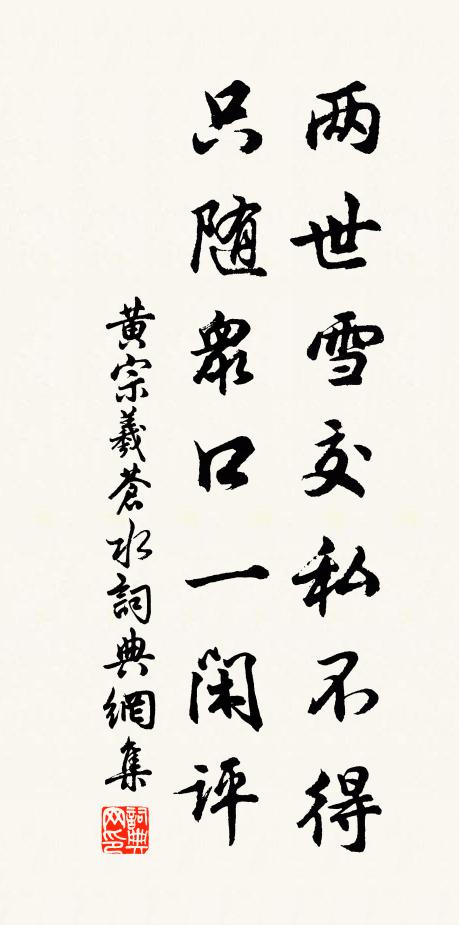 两世雪交私不得
只随衆口一闲评
黄宗羲蒼水詞典網集
詞典网印